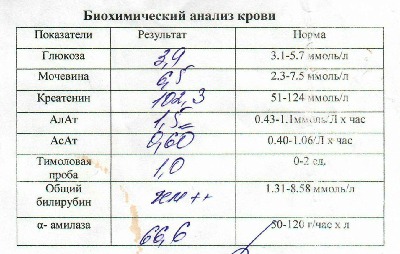 Биохимический анализ крови
Показатели Результат Норма
Глюкоза 3,9 3.1-5.7 ммоль/л
Мочевина 6,5 2.3-7.5 ммоль/л
Креатенин 102,3 51-124 ммоль/л
АлАт 1,5 0.43-1.1ммоль/Л х час
АсАт 0,60 0.40-1.06/Л х час
Тимоловая
проба 1,0 0-2 ед.
Общий
билирубин ++ 1.31-8.58 ммоль/л
α- амилаза 66,6 50-120 г/час х л